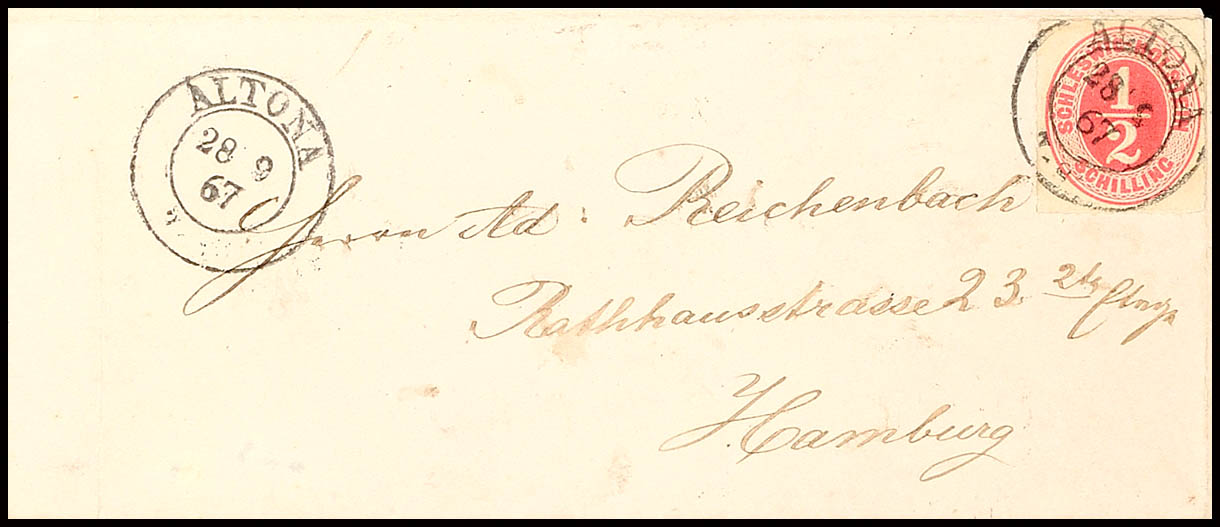 ALTONA
28 9
67
ALTONA
28 9
67
SCHLESWIG
1/2
SCHILLING
Herrn Ad: Reichenbach
Rathhausstrasse 23. 2te Etage
Hamburg